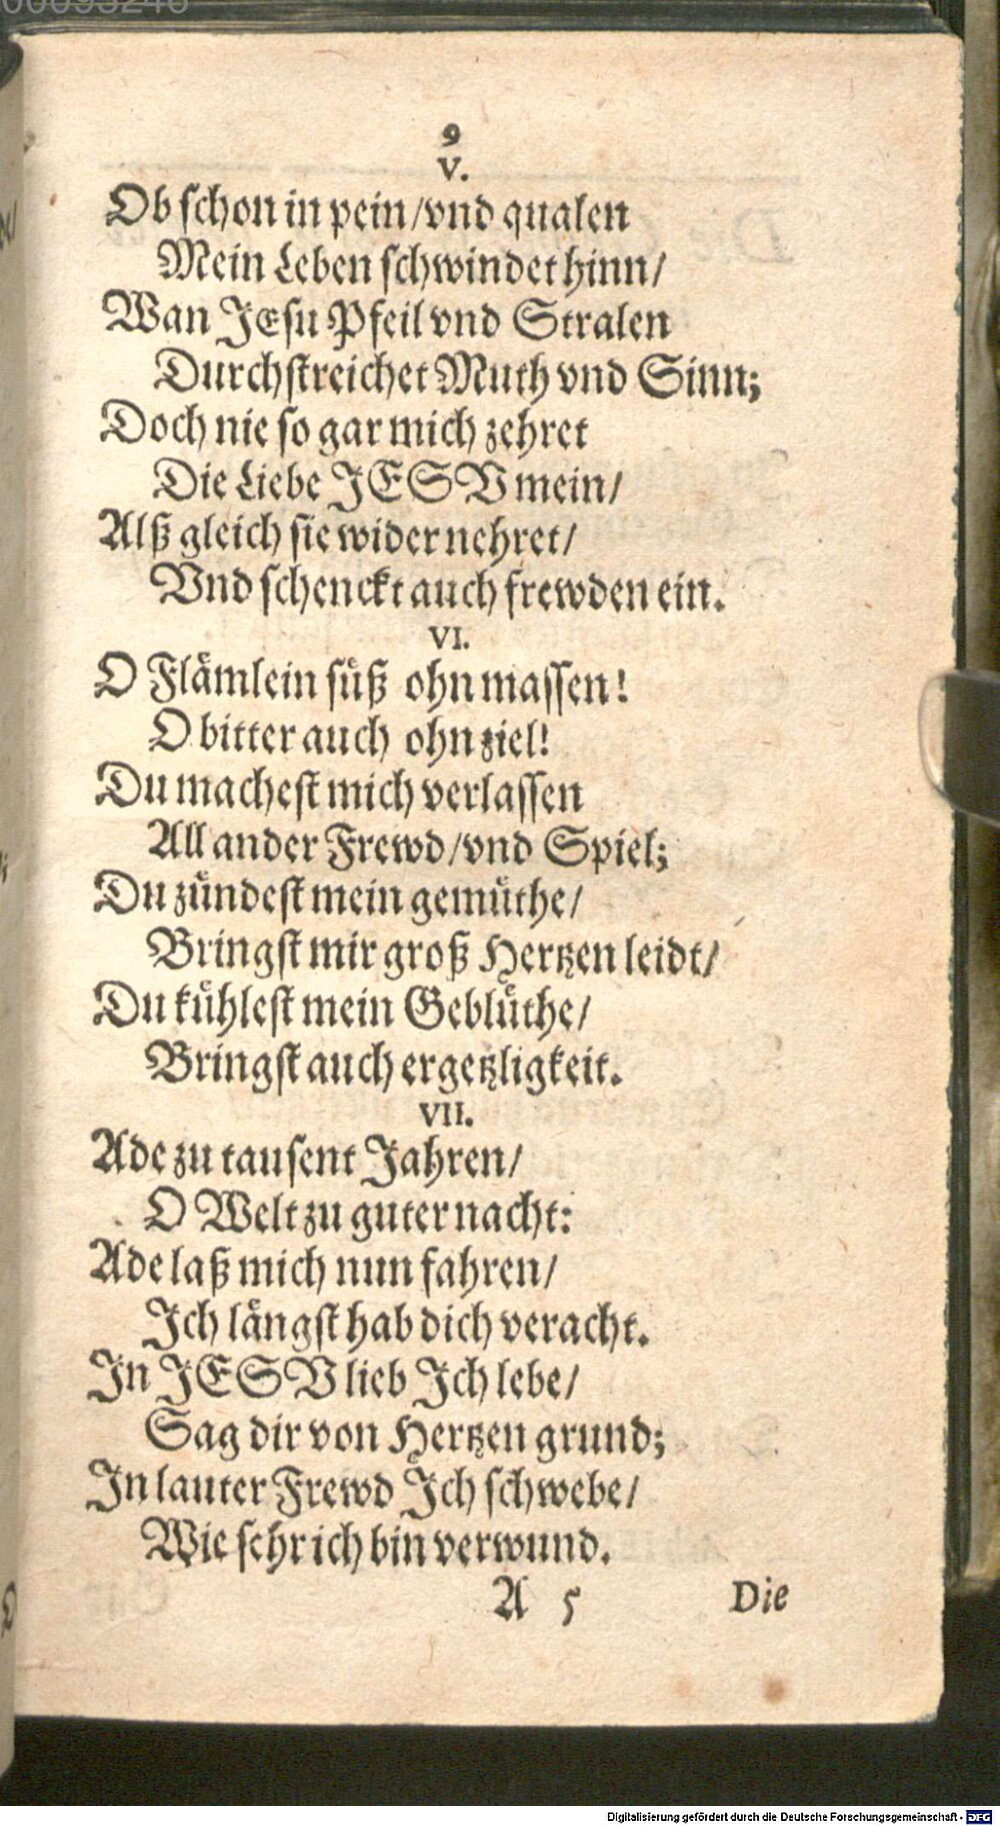 00095246
9
V.
Ob schon in pein/vnd qualen
Mein Leben schwindet hinn/
Wan JEsu Pfeil vnd Stralen
Durchstreichet Muth vnd Sinn;
Doch nie so gar mich zehret
Die Liebe JESV mein/
Alß gleich sie wider nehret/
Vnd schenckt auch frewden ein.
VI.
O Flämlein süß ohn massen!
O bitter auch ohn ziel!
Du machest mich verlassen
All ander Frewd/vnd Spiel;
Du zündest mein gemüthe/
Bringst mir groß Hertzen leidt/
Du kühlest mein Geblüthe/
Bringst auch ergetzligkeit.
VII.
Ade zu tausent Jahren/
O Welt zu guter nacht:
Ade laß mich nun fahren/
Ich längst hab dich veracht.
In JESV lieb Ich lebe/
Sag dir von Hertzen grund;
In lauter Frewd Ich schwebe/
Wie sehr ich bin verwund.
A 5 Die
Digitalisierung gefördert durch die Deutsche Forschungsgemeinschaft - DFG